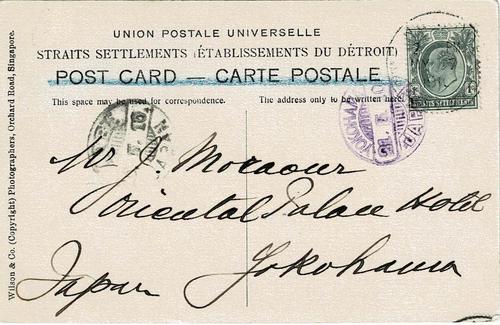 UNION POSTALE UNIVERSELLE
STRAITS SETTLEMENTS (ÉTABLISSEMENTS DU DÉTROIT)
POST CARD — CARTE POSTALE
This space may be used for correspondence.
The address only to be written here.
STRAITS SETTLEMENTS
YOKOHAMA
JAPAN
Mr. Moraour
Oriental Palace Hotel
Yokohama
Japan
Wilson & Co. (Copyright) Photographers, Orchard Road, Singapore.